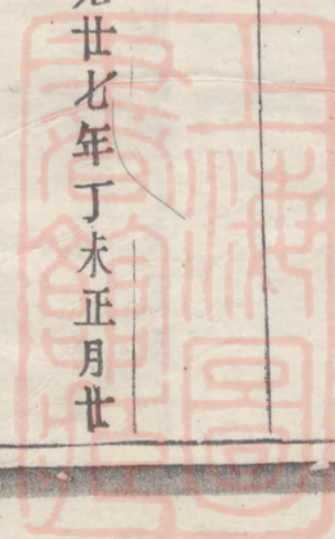 廿七年丁未正月廿
上海圖
書館藏